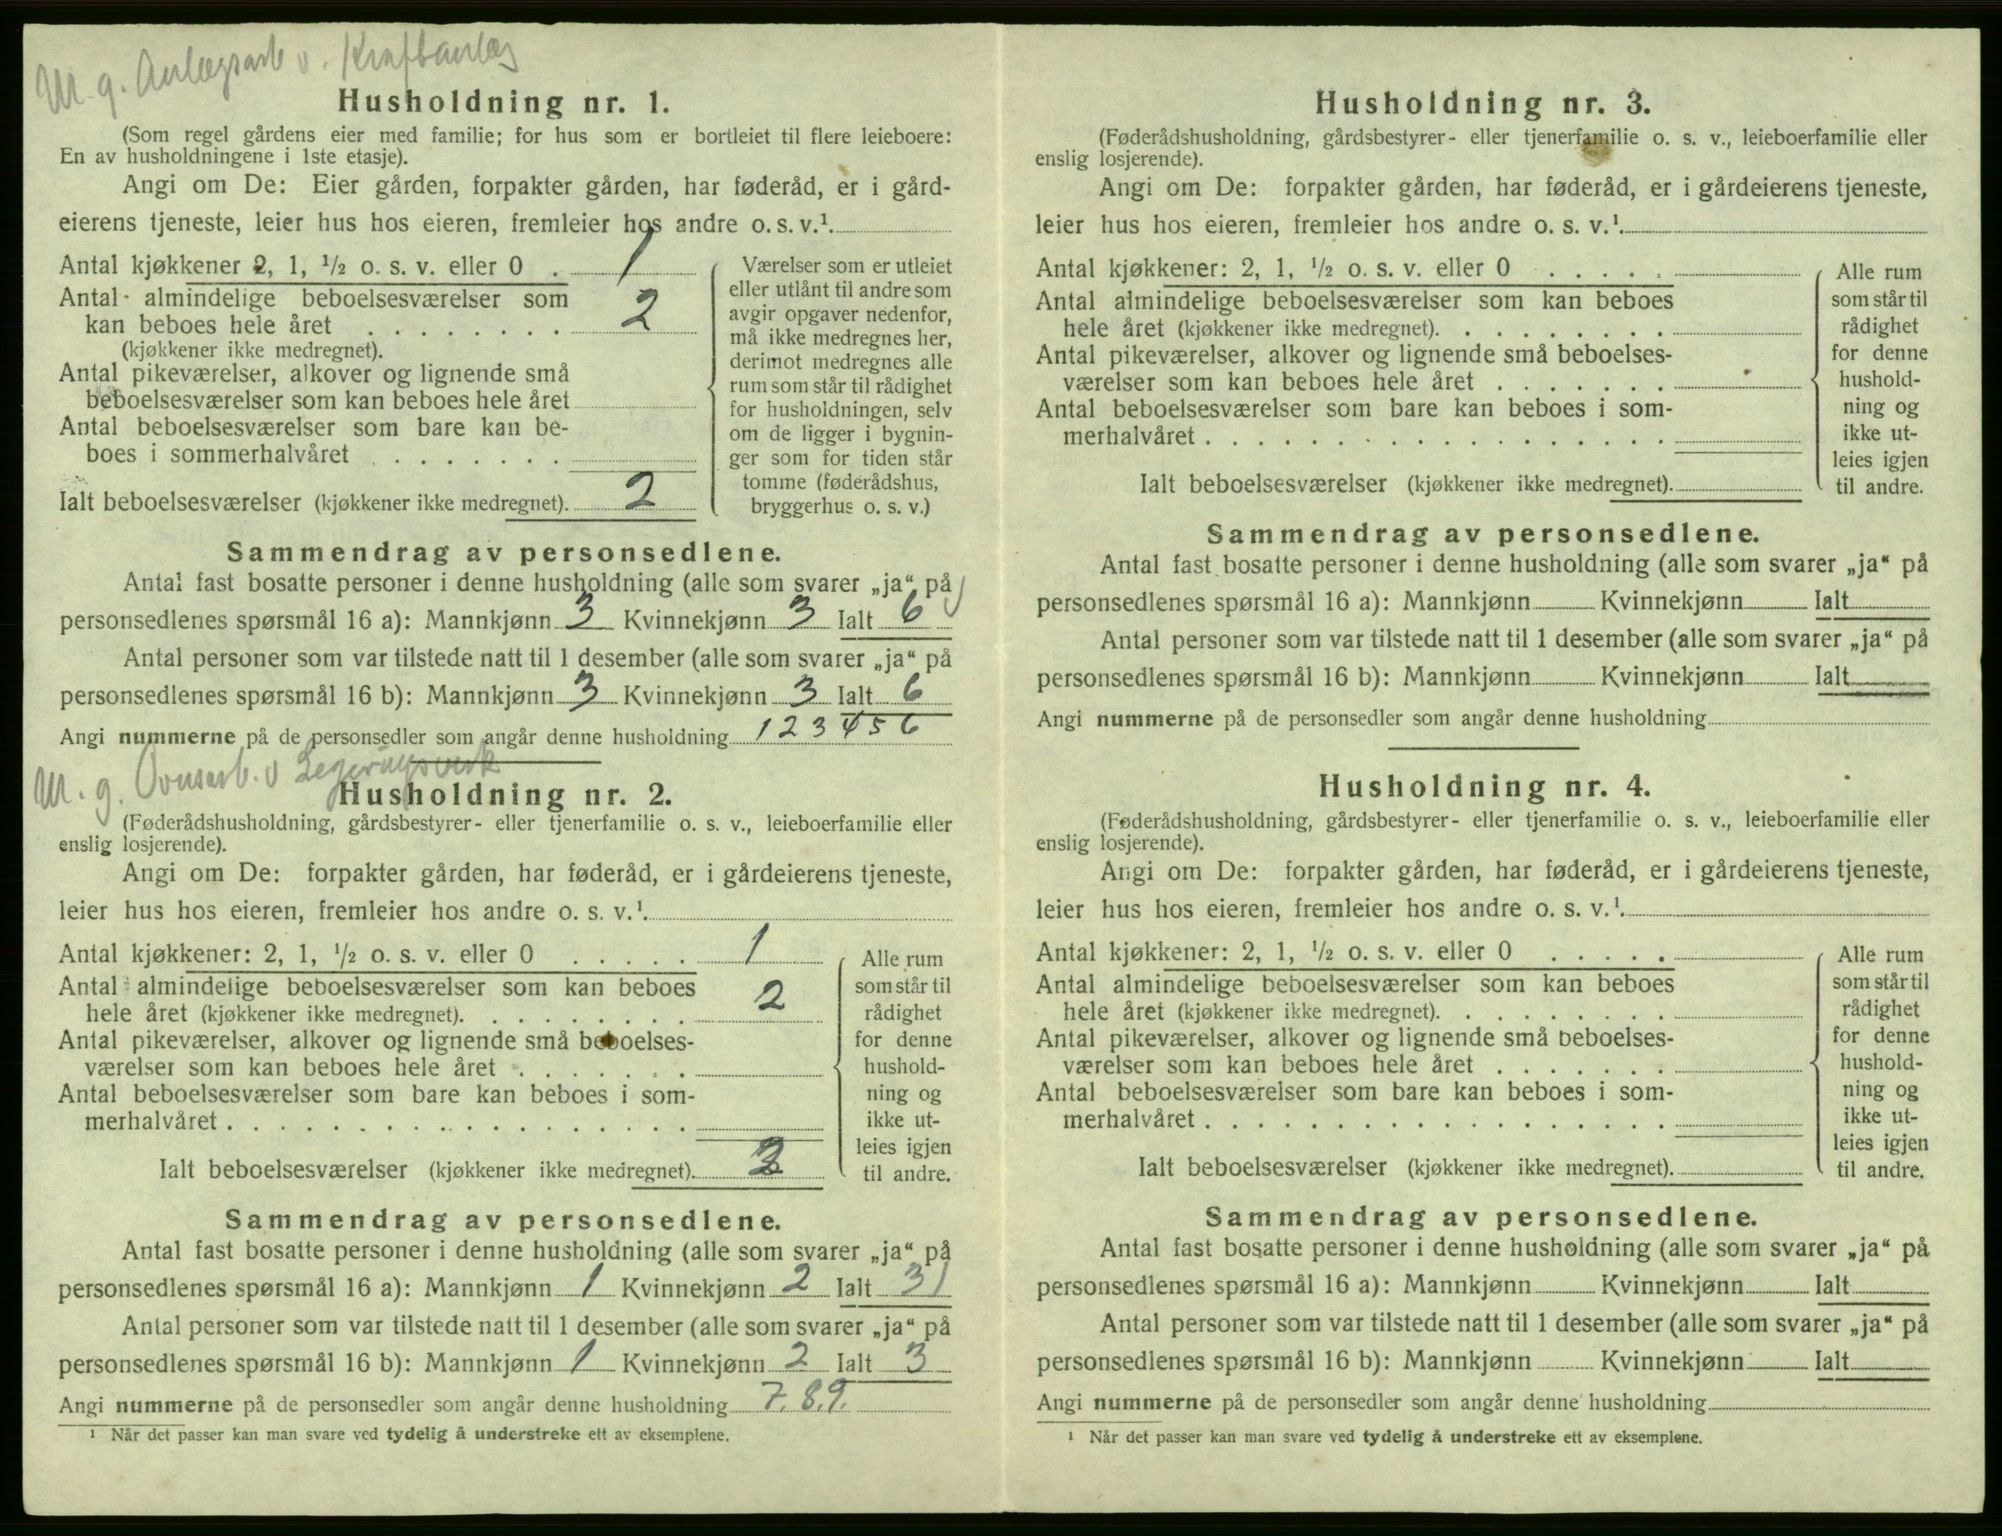 M. g. Anlegsarb v. Kraftanleg
Husholdning nr. 1.
(Som regel gårdens eier med familie; for hus som er bortleiet til flere leieboere:
En av husholdningene i 1ste etasje).
Angi om De: Eier gården, forpakter gården, har føderåd, er i gård-
eierens tjeneste, leier hus hos eieren, fremleier hos andre o. s. v.¹.
Antal kjøkkener 2, 1, ½ o. s. v. eller 0 . 1
Antal almindelige beboelsesværelser som
kan beboes hele året . . . . . . . . 2
(kjøkkener ikke medregnet).
Antal pikeværelser, alkover og lignende små
beboelsesværelser som kan beboes hele året
Antal beboelsesværelser som bare kan be-
boes i sommerhalvåret . . . . . . .
Ialt beboelsesværelser (kjøkkener ikke medregnet). 2
Værelser som er utleiet
eller utlånt til andre som
avgir opgaver nedenfor,
må ikke medregnes her,
derimot medregnes alle
rum som står til rådighet
for husholdningen, selv
om de ligger i bygnin-
ger som for tiden står
tomme (føderådshus,
bryggerhus o. s. v.)
Sammendrag av personsedlene.
Antal fast bosatte personer i denne husholdning (alle som svarer „ja“ på
personsedlenes spørsmål 16 a): Mannkjønn 3 Kvinnekjønn 3 Ialt 6
Antal personer som var tilstede natt til 1 desember (alle som svarer „ja“ på
personsedlenes spørsmål 16 b): Mannkjønn 3 Kvinnekjønn 3 Ialt 6
Angi nummerne på de personsedler som angår denne husholdning 1 2 3 4 5 6
M. g. Ovnsarb. v Legeringsverk
Husholdning nr. 2.
(Føderådshusholdning, gårdsbestyrer- eller tjenerfamilie o. s. v., leieboerfamilie eller
enslig losjerende).
Angi om De: forpakter gården, har føderåd, er i gårdeierens tjeneste,
leier hus hos eieren, fremleier hos andre o. s. v.¹.
Antal kjøkkener: 2, 1, ½ o. s. v. eller 0 . . . . . 1
Antal almindelige beboelsesværelser som kan beboes
hele året (kjøkkener ikke medregnet). . . . . . . . . 2
Antal pikeværelser, alkover og lignende små beboelses-
værelser som kan beboes hele året . . . . . . .
Antal beboelsesværelser som bare kan beboes i som-
merhalvåret . . . . . . . . . . . . . . . . . .
Ialt beboelsesværelser (kjøkkener ikke medregnet).
Alle rum
som står til
rådighet
for denne
hushold-
ning og
ikke ut-
leies igjen
til andre.
Sammendrag av personsedlene.
Antal fast bosatte personer i denne husholdning (alle som svarer „ja“ på
personsedlenes spørsmål 16 a): Mannkjønn 1 Kvinnekjønn 2 Ialt 3
Antal personer som var tilstede natt til 1 desember (alle som svarer „ja“ på
personsedlenes spørsmål 16 b): Mannkjønn 1 Kvinnekjønn 2 Ialt 3
Angi nummerne på de personsedler som angår denne husholdning 7. 8. 9.
¹ Når det passer kan man svare ved tydelig å understreke ett av eksemplene.
Husholdning nr. 3.
(Føderådshusholdning, gårdsbestyrer- eller tjenerfamilie o. s. v., leieboerfamilie eller
enslig losjerende).
Angi om De: forpakter gården, har føderåd, er i gårdeierens tjeneste,
leier hus hos eieren, fremleier hos andre o. s. v.¹.
Antal kjøkkener: 2, 1, ½ o. s. v. eller 0 . . . . .
Antal almindelige beboelsesværelser som kan beboes
hele året (kjøkkener ikke medregnet). . . . . . . . .
Antal pikeværelser, alkover og lignende små beboelses-
værelser som kan beboes hele året . . . . . . .
Antal beboelsesværelser som bare kan beboes i som-
merhalvåret . . . . . . . . . . . . . . . . . .
Ialt beboelsesværelser (kjøkkener ikke medregnet).
Alle rum
som står til
rådighet
for denne
hushold-
ning og
ikke ut-
leies igjen
til andre.
Sammendrag av personsedlene.
Antal fast bosatte personer i denne husholdning (alle som svarer „ja“ på
personsedlenes spørsmål 16 a): Mannkjønn Kvinnekjønn Ialt
Antal personer som var tilstede natt til 1 desember (alle som svarer „ja“ på
personsedlenes spørsmål 16 b): Mannkjønn Kvinnekjønn Ialt
Angi nummerne på de personsedler som angår denne husholdning
Husholdning nr. 4.
(Føderådshusholdning, gårdsbestyrer- eller tjenerfamilie o. s. v., leieboerfamilie eller
enslig losjerende).
Angi om De: forpakter gården, har føderåd, er i gårdeierens tjeneste,
leier hus hos eieren, fremleier hos andre o. s. v.¹.
Antal kjøkkener: 2, 1, ½ o. s. v. eller 0 . . . . .
Antal almindelige beboelsesværelser som kan beboes
hele året (kjøkkener ikke medregnet). . . . . . . . .
Antal pikeværelser, alkover og lignende små beboelses-
værelser som kan beboes hele året . . . . . . .
Antal beboelsesværelser som bare kan beboes i som-
merhalvåret . . . . . . . . . . . . . . . . . .
Ialt beboelsesværelser (kjøkkener ikke medregnet).
Alle rum
som står til
rådighet
for denne
hushold-
ning og
ikke ut-
leies igjen
til andre.
Sammendrag av personsedlene.
Antal fast bosatte personer i denne husholdning (alle som svarer „ja“ på
personsedlenes spørsmål 16 a): Mannkjønn Kvinnekjønn Ialt
Antal personer som var tilstede natt til 1 desember (alle som svarer „ja“ på
personsedlenes spørsmål 16 b): Mannkjønn Kvinnekjønn Ialt
Angi nummerne på de personsedler som angår denne husholdning
¹ Når det passer kan man svare ved tydelig å understreke ett av eksemplene.